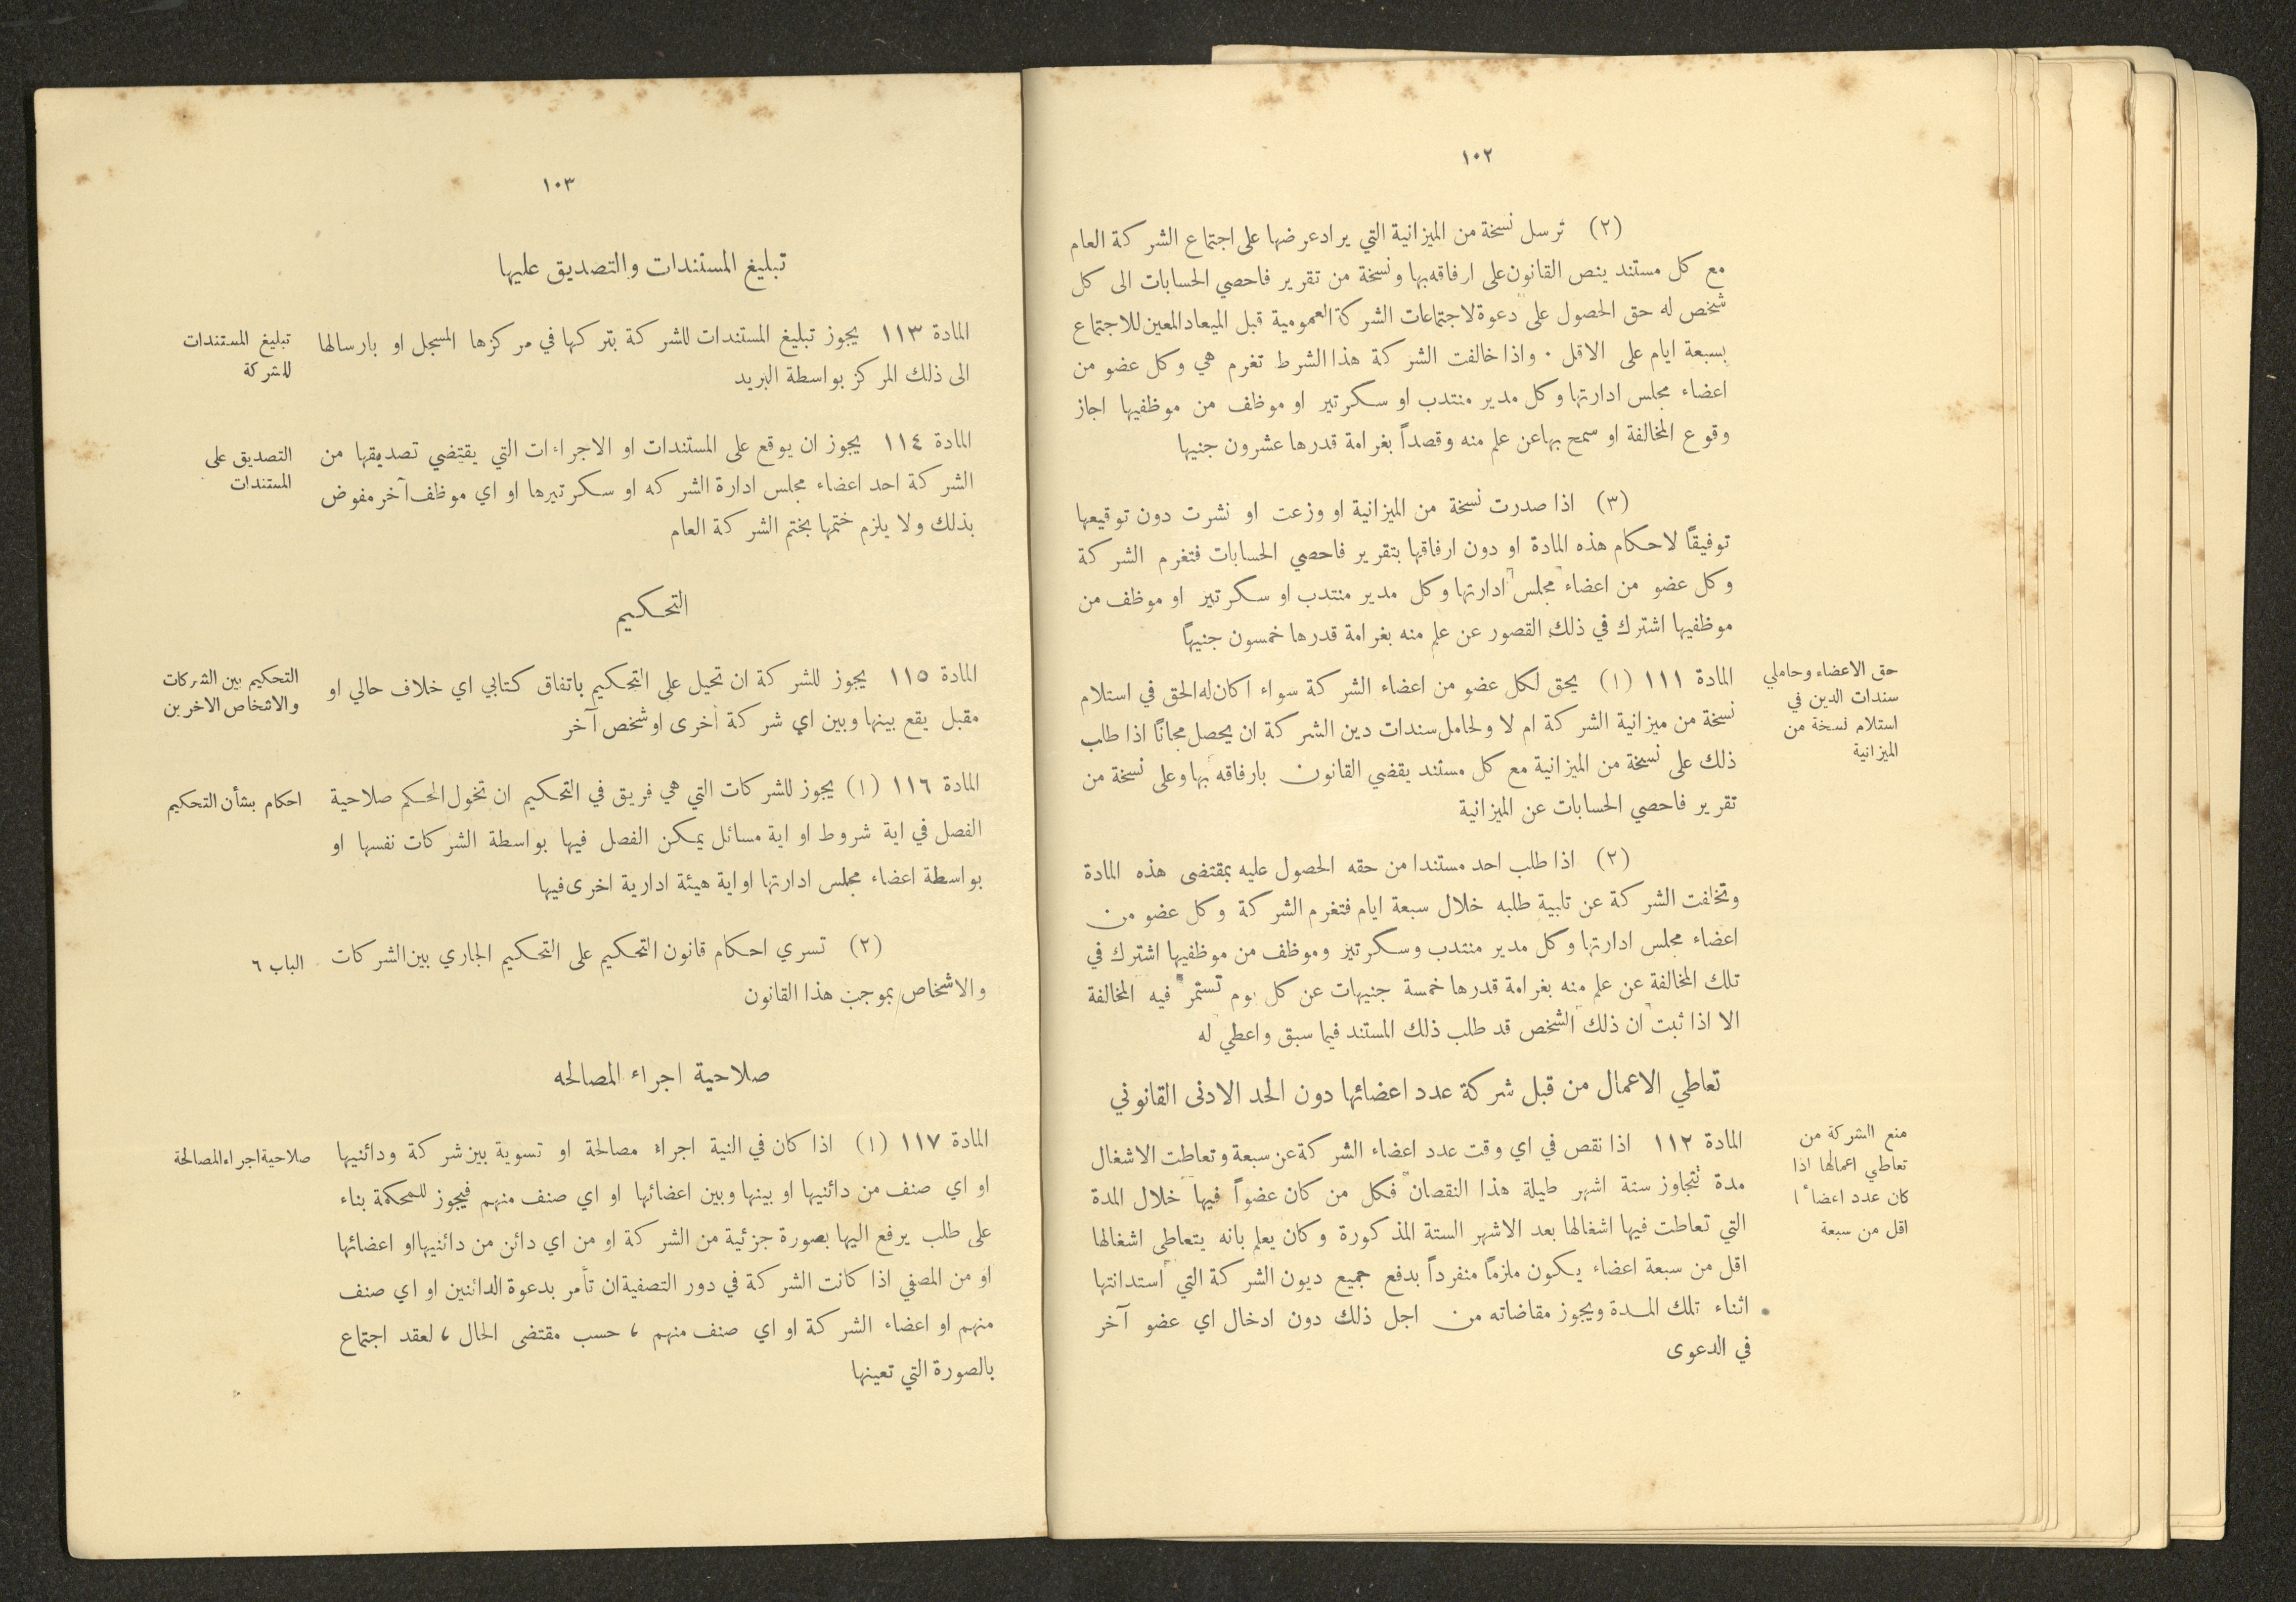 ١٠٢
(٢) ترسل نسخة من الميزانية التي يراد عرضها على اجتماع الشركة العام
مع كل مستند ينص القانون على ارفاقه بها ونسخة من تقرير فاحصي الحسابات الى كل
شخص له حق الحصول على دعوة لاجتماعات الشركة العمومية قبل الميعاد المعين للاجتماع
بسبعة ايام على الاقل . واذا خالفت الشركة هذا الشرط تغرم هي وكل عضو من
اعضاء مجلس ادارتها وكل مدير منتدب او سكرتير او موظف من موظفيها اجاز
وقوع المخالفة او سمح بها عن علم منه وقصداً بغرامة قدرها عشرون جنيها
(٣) اذا صدرت نسخة من الميزانية او وزعت او نشرت دون توقيعها
توفيقاً لاحكام هذه المادة او دون ارفاقها بتقرير فاحصي الحسابات فتغرم الشركة
وكل عضو من اعضاء مجلس ادارتها وكل مدير منتدب او سكرتير او موظف من
موظفيها اشترك في ذلك القصور عن علم منه بغرامة قدرها خمسون جنيهاً
حق الاعضاء وحاملي
سندات الدين في
استلام نسخة من
الميزانية
المادة ١١١ (١) يحق لكل عضو من اعضاء الشركة سواء اكان له الحق في استلام
نسخة من ميزانية الشركة ام لا ولحامل سندات دين الشركة ان يحصل مجاناً اذا طلب
ذلك على نسخة من الميزانية مع كل مستند يقضي القانون بارفاقه بها وعلى نسخة من
تقرير فاحصي الحسابات عن الميزانية
(٢) اذا طلب احد مستندا من حقه الحصول عليه بمقتضى هذه المادة
وتخلفت الشركة عن تلبية طلبه خلال سبعة ايام فتغرم الشركة وكل عضو من
اعضاء مجلس ادارتها وكل مدير منتدب وسكرتير وموظف من موظفيها اشترك في
تلك المخالفة عن علم منه بغرامة قدرها خمسة جنيهات عن كل يوم تستمر فيه المخالفة
الا اذا ثبت ان ذلك الشخص قد طلب ذلك المستند فيما سبق واعطي له
تعاطي الاعمال من قبل شركة عدد اعضائها دون الحد الادنى القانوني
منع الشركة من
تعاطي اعمالها اذا
كان عدد
اقل من سبعة
المادة ١١٢ اذا نقص في اي وقت عدد اعضاء الشركة عن سبعة وتعاطت الاشغال
مدة تتجاوز ستة اشهر طيلة هذا النقصان فكل من كان عضواً فيها خلال المدة
التي تعاطت فيها اشغالها بعد الاشهر الستة المذكورة وكان يعلم بانه يتعاطى اشغالها
اقل من سبعة اعضاء يكون ملزماً منفرداً بدفع جميع ديون الشركة التي استدانتها
اثناء تلك المدة ويجوز مقاضاته من اجل ذلك دون ادخال اي عضو آخر
في الدعوى
١٠٣
تبليغ المستندات والتصديق عليها
المادة ١١٣ يجوز تبليغ المستندات للشركة بتركها في مركزها المسجل او بارسالها
الى ذلك المركز بواسطة البريد
تبليغ المستندات
للشركة
المادة ١١٤ يجوز ان يوقع على المستندات او الاجراءات التي يقتضي تصديقها من
الشركة احد اعضاء مجلس ادارة الشركه او سكرتيرها او اي موظف آخر مفوض
بذلك ولا يلزم ختمها بختم الشركة العام
التصديق على
المستندات
التحكيم
المادة ١١٥ يجوز للشركة ان تحيل على التحكيم باتفاق كتابي اي خلاف حالي او
مقبل يقع بينها وبين اي شركة أخرى او شخص آخر
التحكيم بين الشركات
والاشخاص الاخرين
المادة ١١٦ (١) يجوز للشركات التي هي فريق في التحكيم ان تخول الحكم صلاحية
الفصل في اية شروط او اية مسائل يمكن الفصل فيها بواسطة الشركات نفسها او
بواسطة اعضاء مجلس ادارتها او اية هيئة ادارية اخرى فيها
احكام بشأن التحكيم
(٢) تسري احكام قانون التحكيم على التحكيم الجاري بين الشركات
والاشخاص بموجب هذا القانون
الباب ٦
صلاحية اجراء المصالحه
المادة ١١٧ (١) اذا كان في النية اجراء مصالحة او تسوية بين شركة ودائنيها
او اي صنف من دائنيها او بينها وبين اعضائها او اي صنف منهم فيجوز للمحكمة بناء
على طلب يرفع اليها بصورة جزئية من الشركة او من اي دائن من دائنيها او اعضائها
او من المصفي اذا كانت الشركة في دور التصفية ان تأمر بدعوة الدائنين او اي صنف
منهم او اعضاء الشركة او اي صنف منهم ، حسب مقتضى الحال ، لعقد اجتماع
بالصورة التي تعينها
صلاحية اجراء المصالحة